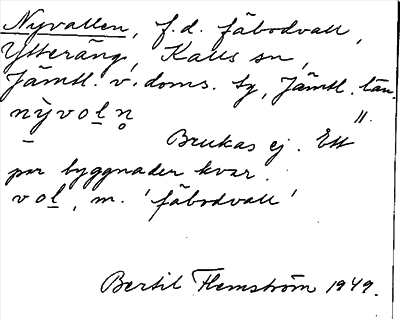 Nyvallen, f.d. fäbodvall,
Ytteräng, Kalls sn,
Jämtl. v. doms. tg, Jämtl. län.
nỳvo̲l̲n̥ "
Brukas ej. Ett
par byggnader kvar.
vo̲l̲, m. 'fäbodvall'
Bertil Flemström 1949.